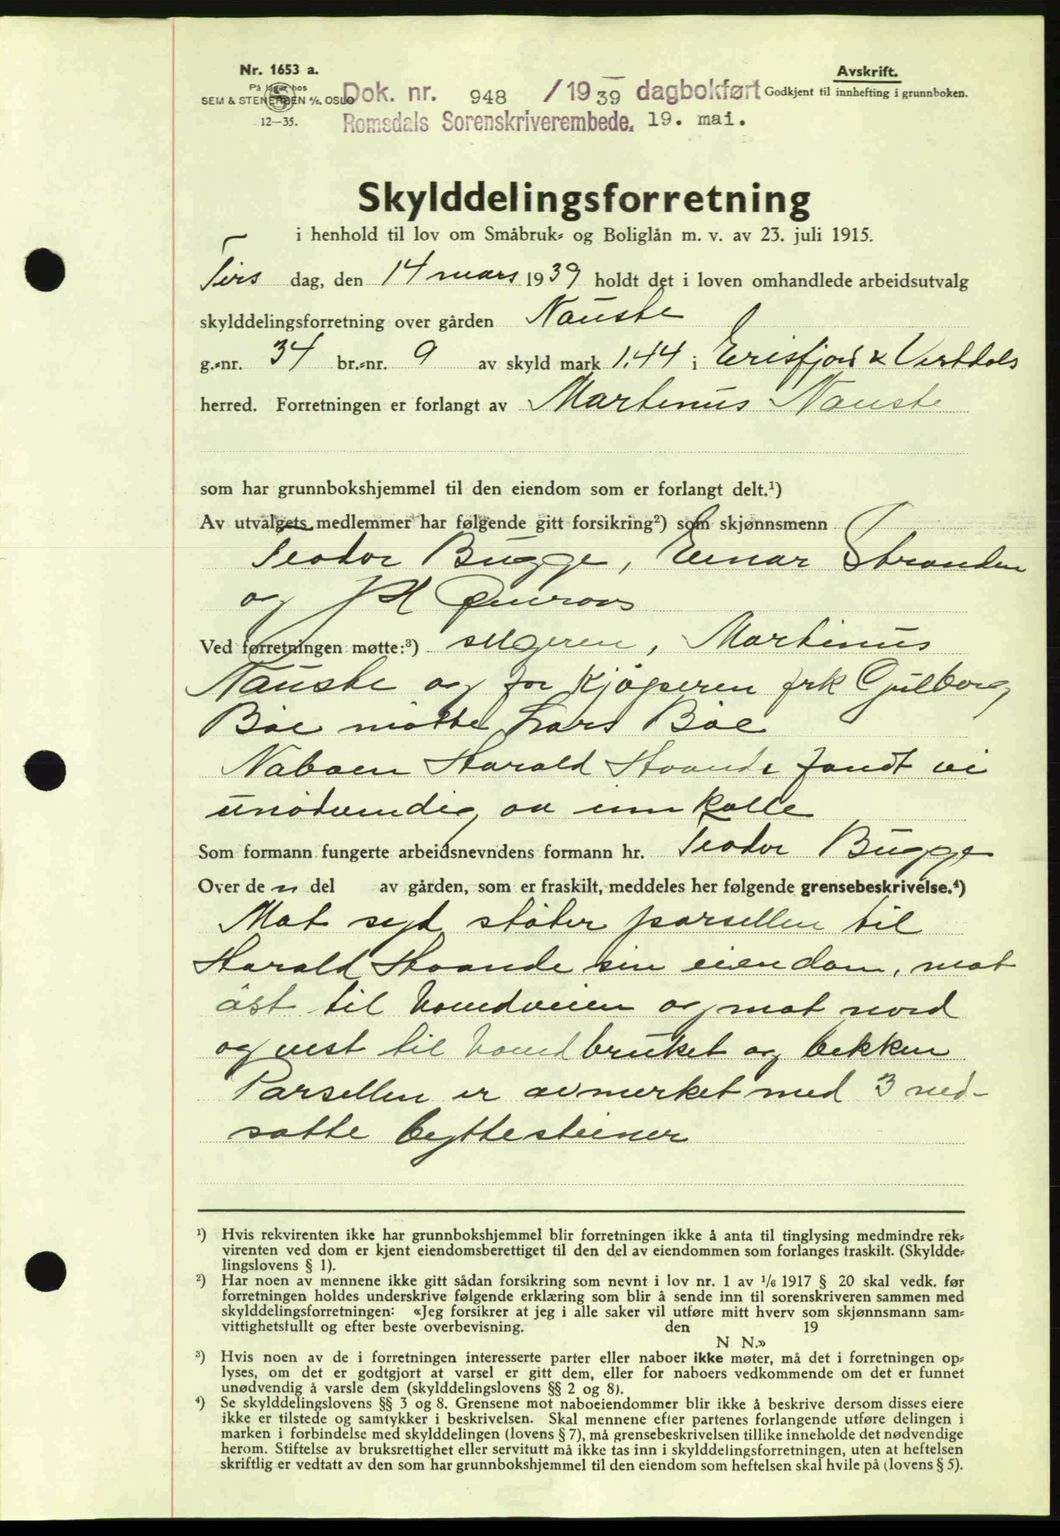 Nr. 1653 a.
På lager hos
SEM & STENERSEN A/S, OSLO
12—35.
Dok. nr. 948 /1939 dagbokført
Romsdals Sorenskriverembede. 19. mai.
Avskrift.
Godkjent til innhefting i grunnboken.
Skylddelingsforretning
i henhold til lov om Småbruk- og Boliglån m. v. av 23. juli 1915.
Tirs dag, den 14 mars 1939 holdt det i loven omhandlede arbeidsutvalg
skylddelingsforretning over gården Nauste
g.-nr. 34 br.-nr. 9 av skyld mark 1.44 i Erisfjord & Vistdals
herred. Forretningen er forlangt av Martinus Nauste
som har grunnbokshjemmel til den eiendom som er forlangt delt.¹)
Av utvalgets medlemmer har følgende gitt forsikring²) som skjønnsmenn
Teodor Bugge, Einar Stranden
og
Ved forretningen møtte:³) selgeren, Martinus
Nauste og for kjøperen frk Gulborg
Bøe møtte Lars Bøe
Naboen Harald Haande fandt vi
unødvendig aa innkalle
Som formann fungerte arbeidsnevndens formann hr. Teodor Bugge
Over de n del av gården, som er fraskilt, meddeles her følgende grensebeskrivelse.⁴)
Mot syd støter parsellen til
Harald Haande sin eiendom, mot
øst til bomdveien og mot nord
og vest til bruket og bekken
Parsellen er avmerket med 3 ned-
satte byttesteiner
¹) Hvis rekvirenten ikke har grunnbokshjemmel blir forretningen ikke å anta til tinglysing medmindre rek-
virenten ved dom er kjent eiendomsberettiget til den del av eiendommen som forlanges fraskilt. (Skyldde-
lingslovens § 1).
²) Har noen av mennene ikke gitt sådan forsikring som nevnt i lov nr. 1 av 1/6 1917 § 20 skal vedk. før
forretningen holdes underskrive følgende erklæring som blir å sende inn til sorenskriveren sammen med
skylddelingsforretningen: «Jeg forsikrer at jeg i alle saker vil utføre mitt hverv som skjønnsmann sam-
vittighetsfullt og efter beste overbevisning. den 19
N N.»
³) Hvis noen av de i forretningen interesserte parter eller naboer ikke møter, må det i forretningen op-
lyses, om det er godtgjort at varsel er gitt dem, eller for naboers vedkommende om det er funnet
unødvendig å varsle dem (skylddelingslovens §§ 2 og 8).
⁴) Se skylddelingslovens §§ 3 og 8. Grensene mot naboeiendommer blir ikke å beskrive dersom disses eiere
ikke er tilstede og samtykker i beskrivelsen. Skal mennene efter partenes forlangende utføre delingen i
marken i forbindelse med skylddelingen (lovens § 7), må grensebeskrivelsen tillike inneholde det nødvendige
herom. Stiftelse av bruksrettighet eller servitutt må ikke tas inn i skylddelingsforretningen, uten at heftelsen
skriftlig er vedtatt av den som har grunnbokshjemmel til den eiendom som heftelsen skal hvile på (lovens § 5).